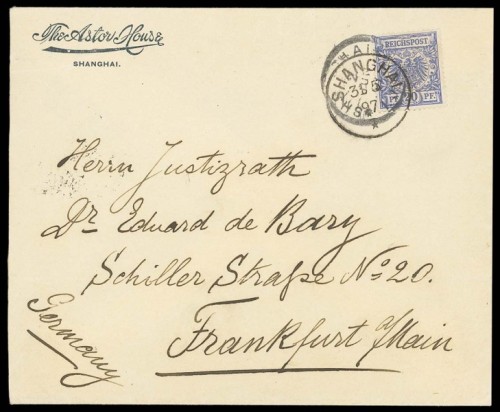 The Astor House
SHANGHAI.
REICHSPOST
PF.
SHANGHAI
97
Herrn Justizrath
Dr Eduard de Bary
Schiller Straße No 20.
Frankfurt a/Main
Germany